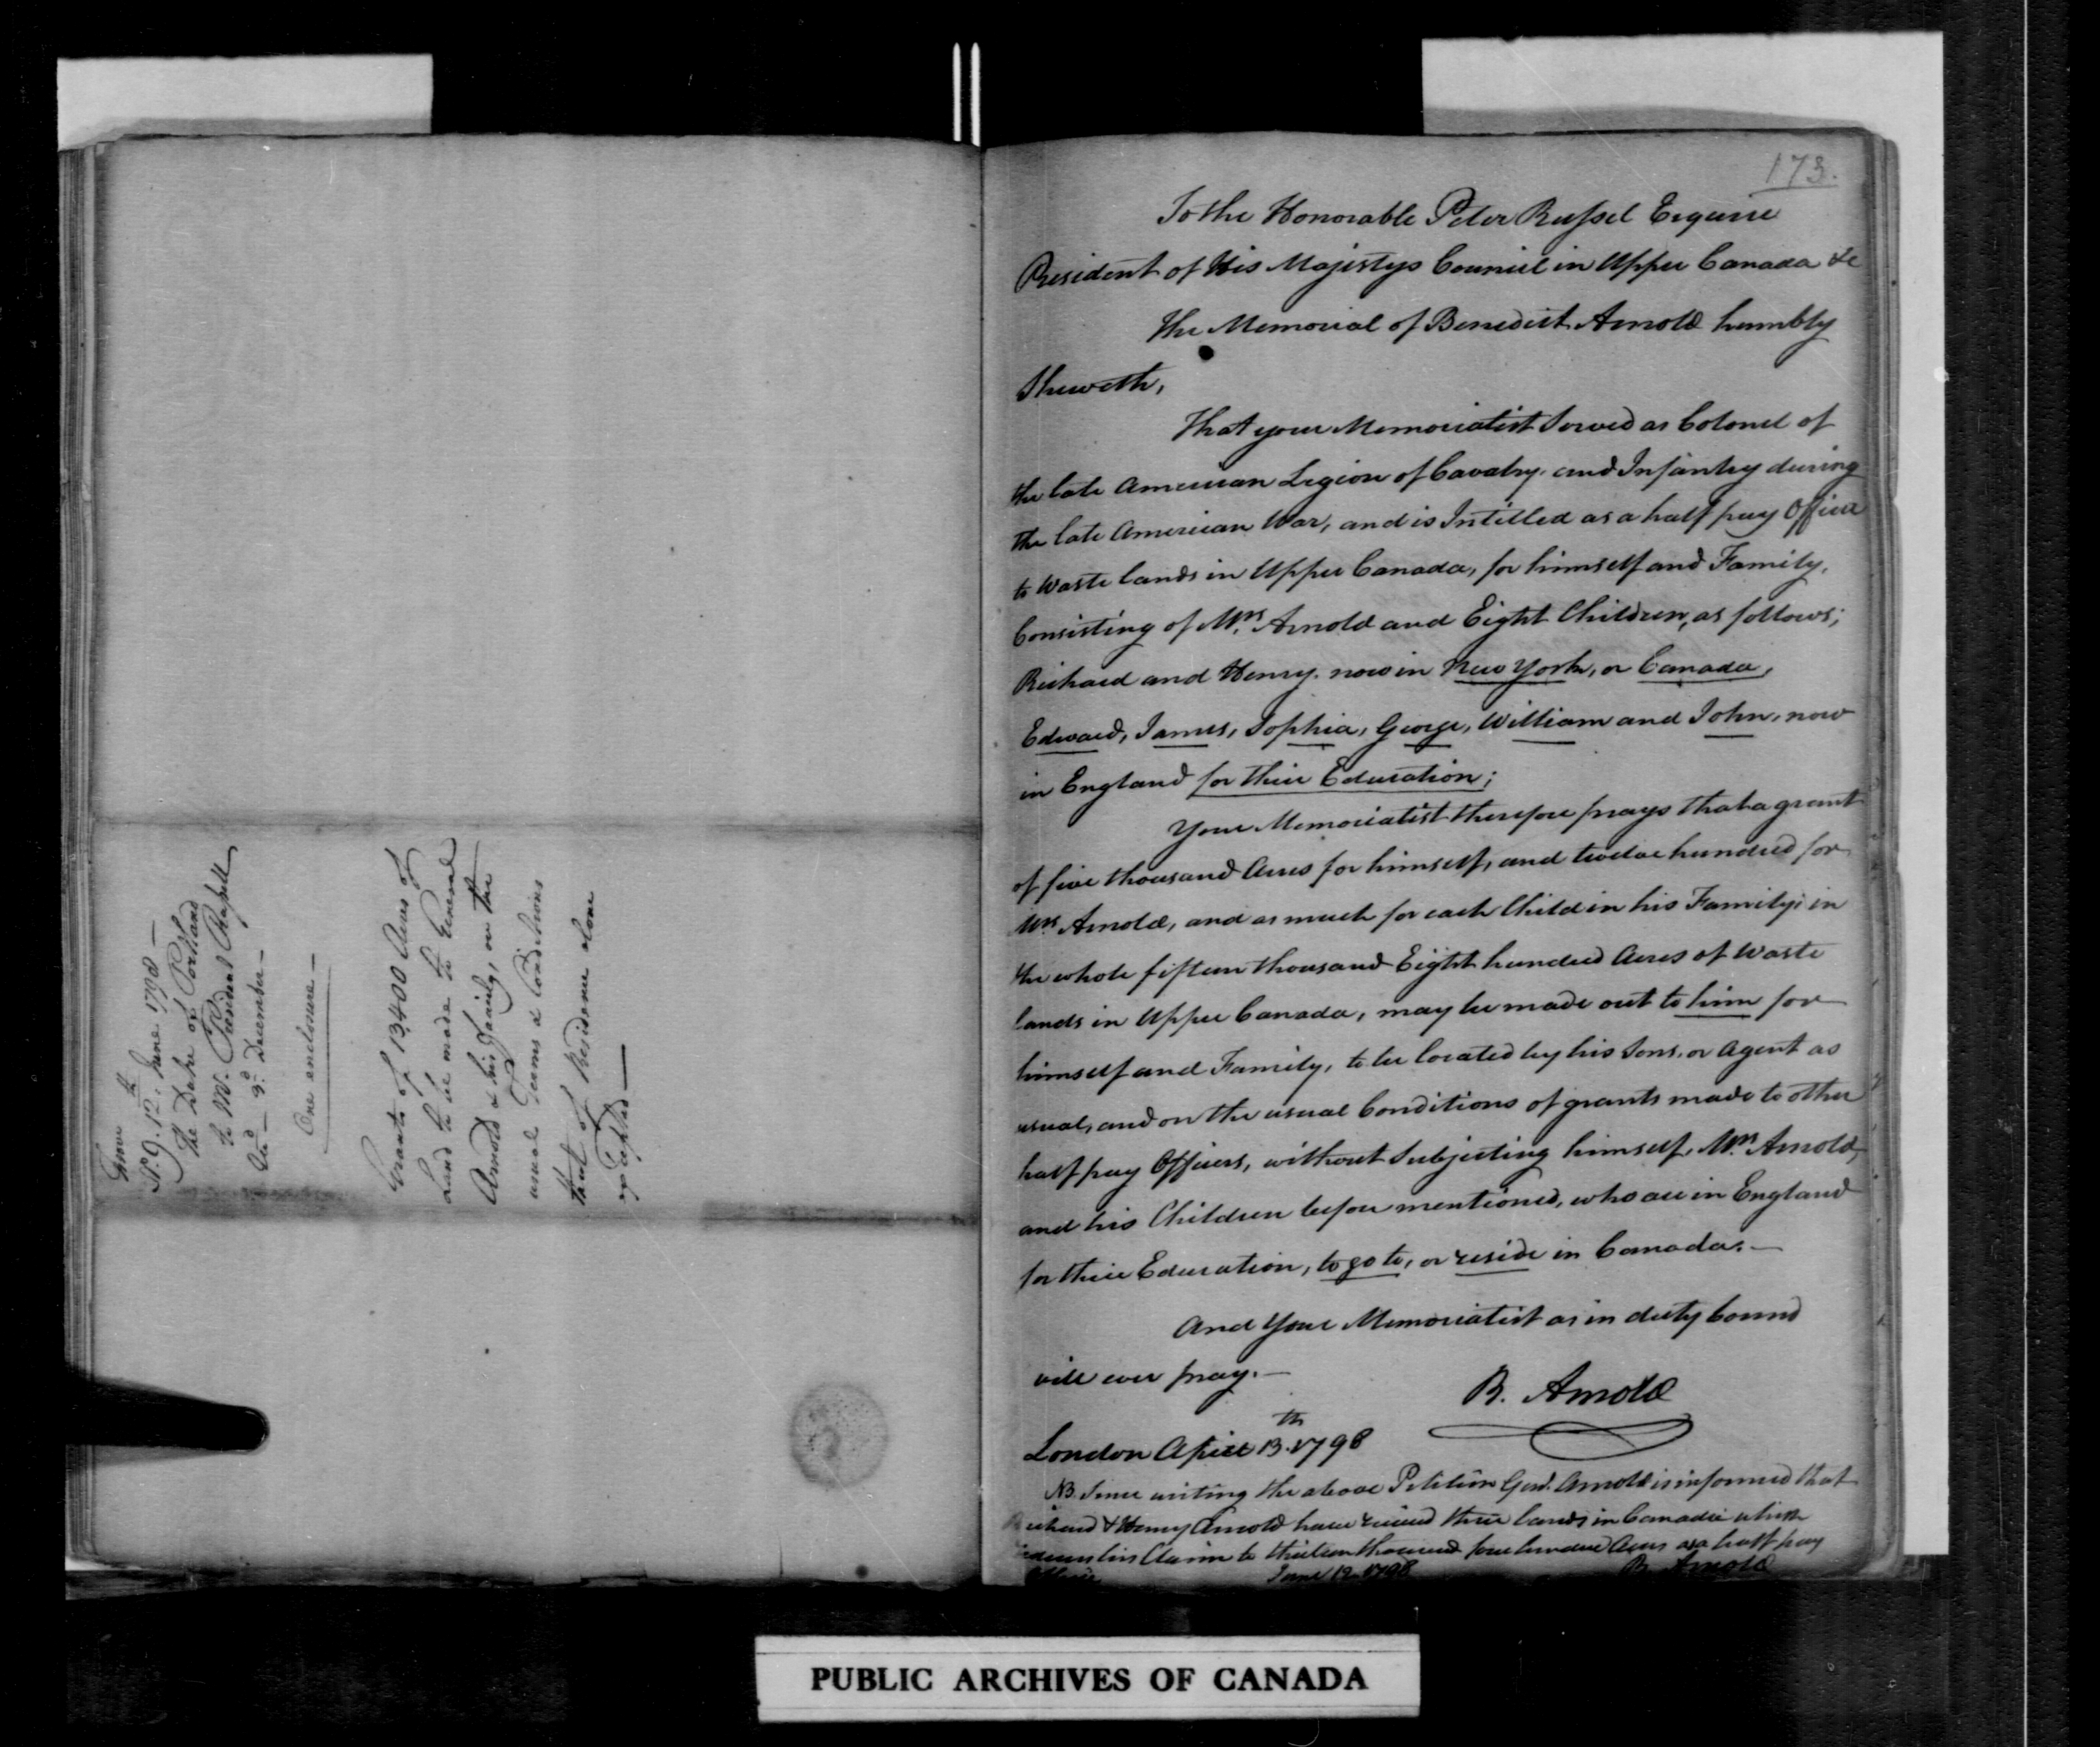 From
No. 9. 12th June 1798 —
The Duke of Portland
to Mr. President Russell
Ansd — 3d December —
One enclosure —
Grants of 13,400 Acres of
Land to be made to General
Arnold & his Family, on the
usual Terms & Conditions
that of Residence alone
excepted —
173.
To the Honorable Peter Russel Esquire
President of His Majestys Council in Upper Canada &c
The Memorial of Benedict Arnold humbly
Sheweth,
That your Memorialist Served as Colonel of
the late American Legion of Cavalry and Infantry during
the late American War, and is Intitled as a half pay Officer
to Waste lands in Upper Canada, for himself and Family,
Consisting of Mrs. Arnold and Eight Children, as follows;
Richard and Henry now in New York, or Canada,
Edward, James, Sophia, George, William and John, now
in England for their Education;
Your Memorialist therefore prays that a grant
of five thousand Acres for himself, and twelve hundred for
Mrs. Arnold, and as much for each Child in his Family; in
the whole fifteen thousand Eight hundred Acres of Waste
lands in Upper Canada, may be made out to him for
himself and Family, to be located by his Sons, or Agent as
usual, and on the usual Conditions of grants made to other
half pay Officers, without Subjecting himself, Mrs. Arnold,
and his Children before mentioned, who are in England
for their Education, to go to, or reside in Canada. —
And Your Memorialist as in duty bound
will ever pray. —
B. Arnold
London April 13th. 1798
NB. Since writing the above Petition Genl. Arnold is informed that
Richard & Henry Arnold have recieved their lands in Canada which
reduces his Claim to thirteen thousand four hundred Acres as a half pay
Officer June 12. 1798 B. Arnold
PUBLIC ARCHIVES OF CANADA